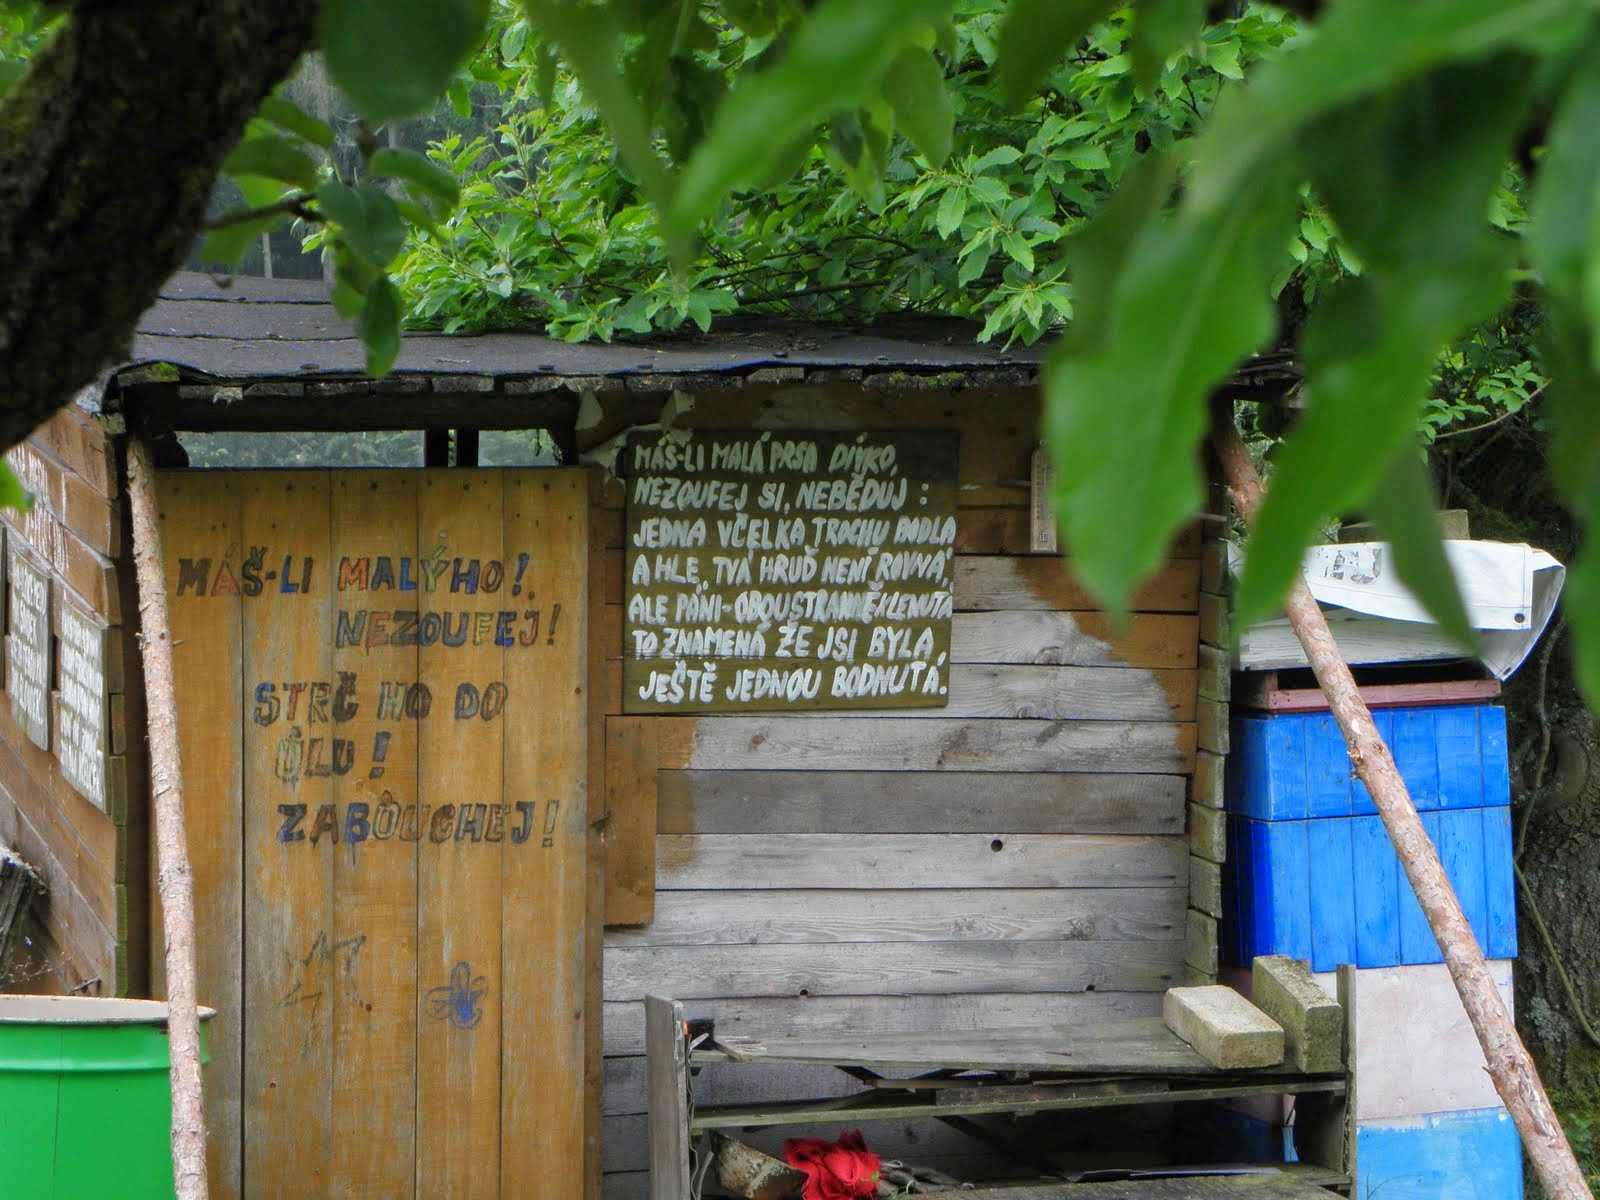 MÁŠ-LI MALÝHO!
NEZOUFEJ!
STRČ HO DO
ÚLU!
ZABOUCHEJ!
MÁŠ-LI MALÁ PRSA DÍVKO,
NEZOUFEJ SI, NEBĚDUJ:
JEDNA VČELKA TROCHU BODLA
A HLE, TVÁ HRUĎ NENÍ ROVNÁ,
ALE PÁNI-OBOUSTRANNĚ KLENUTÁ
TO ZNAMENÁ ŽE JSI BYLA
JEŠTĚ JEDNOU BODNUTÁ.